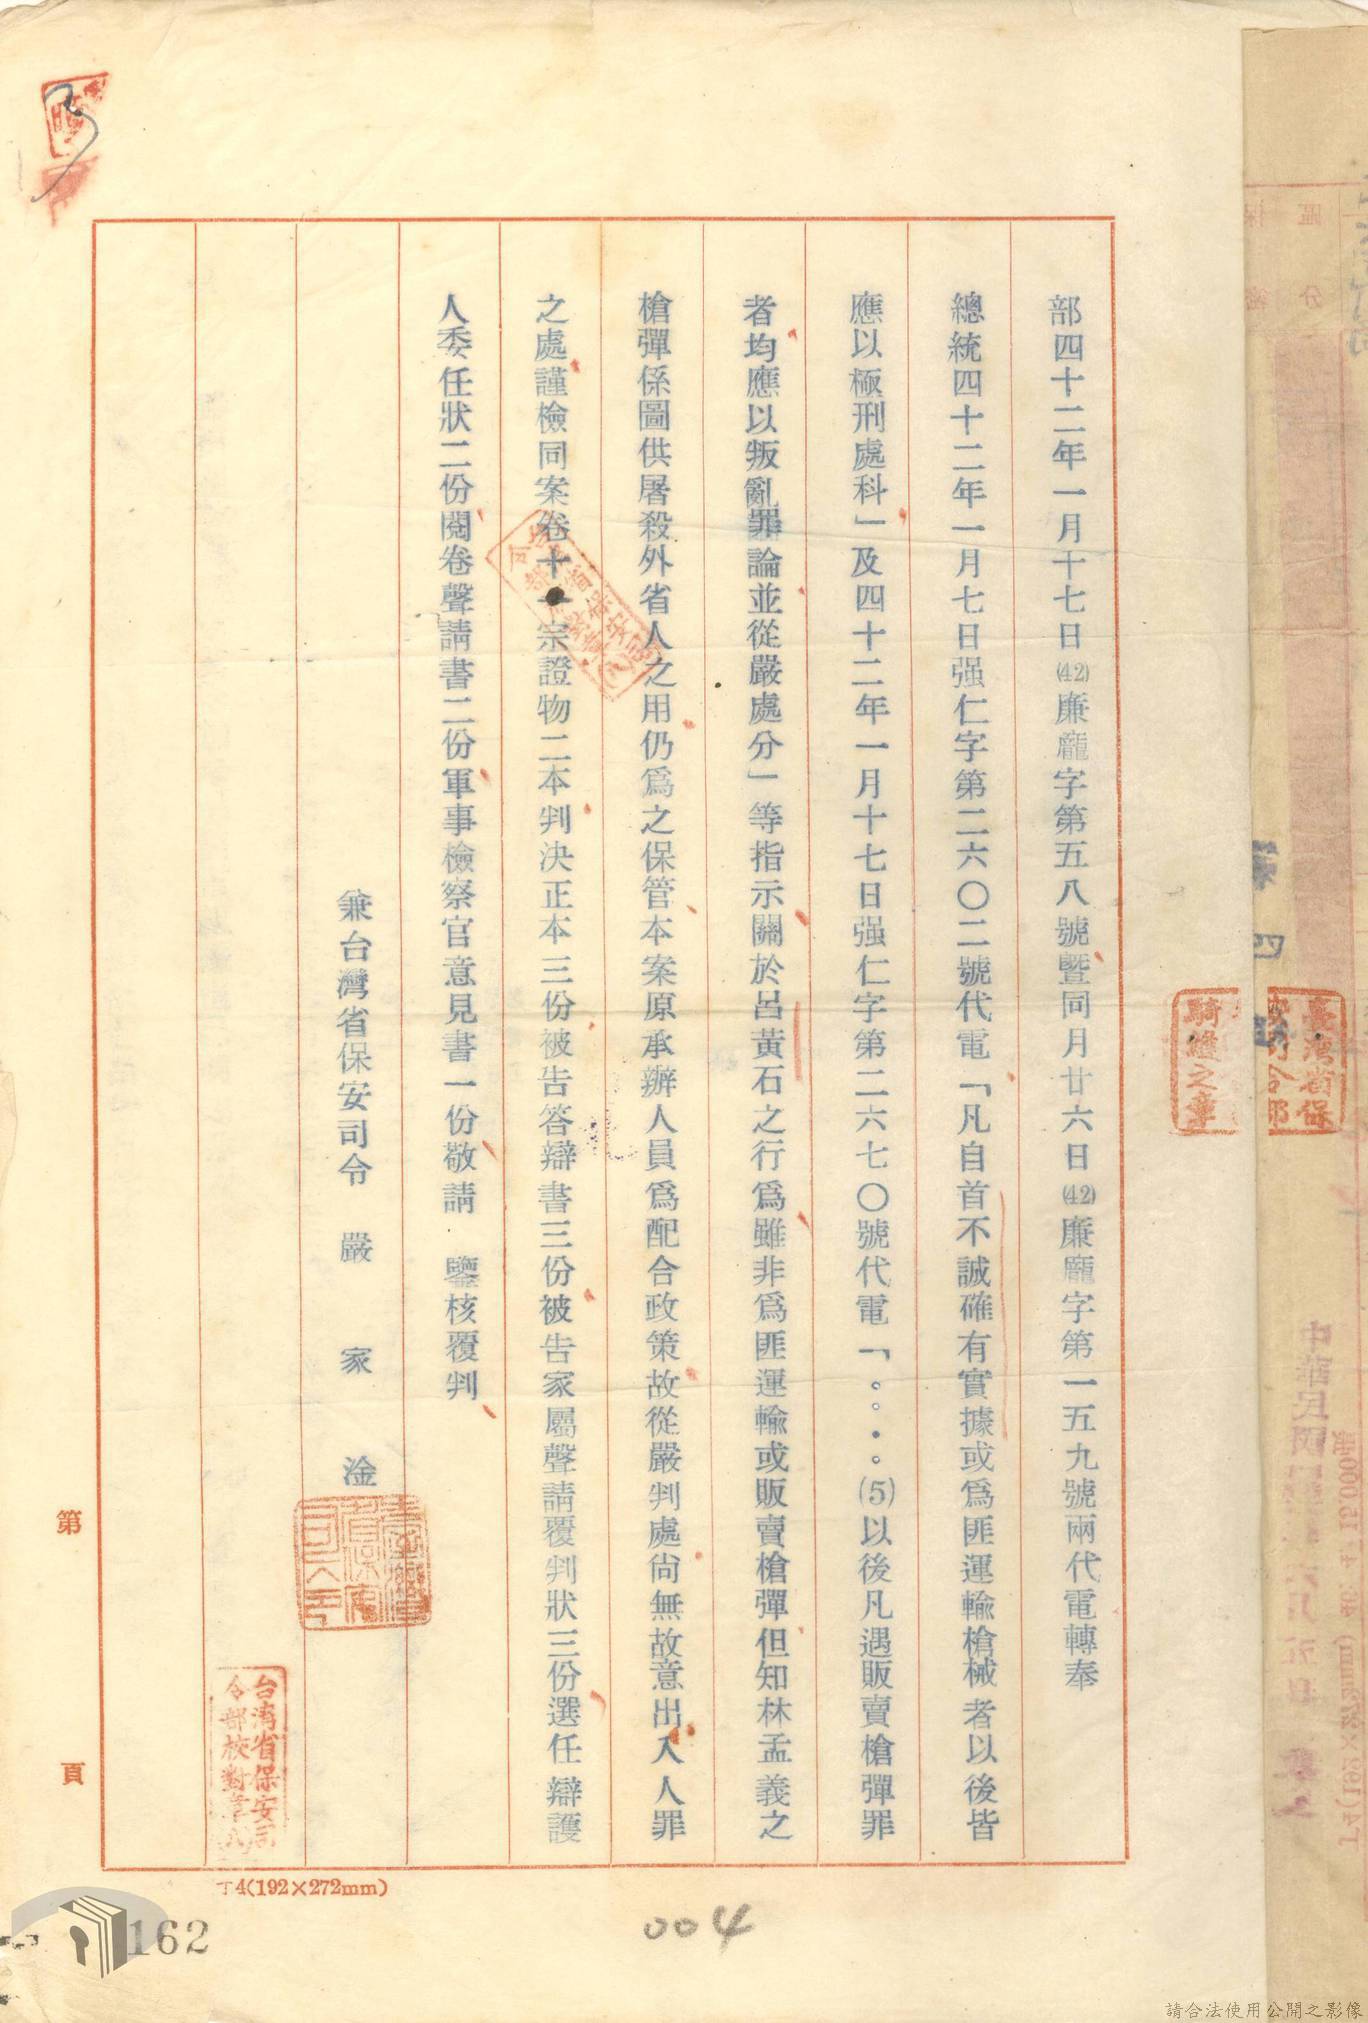 部四十二年一月十七日(42)廉龐字第五八號暨同月廿六日(42)廉龐字第一五九號兩代電轉奉
總統四十二年一月七日强仁字第二六〇二號代電「凡自首不誠確有實據或爲匪運輸槍械者以後皆
應以極刑處科」及四十二年一月十七日强仁字第二六七〇號代電「。。。。(5)以後凡遇販賣槍彈罪
者均應以叛亂罪論並從嚴處分」等指示關於呂黃石之行爲雖非爲匪運輸或販賣槍彈但知林孟義之
槍彈係圖供屠殺外省人之用仍爲之保管本案原承辦人員爲配合政策故從嚴判處尙無故意出入人罪
之處謹檢同案卷十一宗證物二本判決正本三份被告答辯書三份被告家屬聲請覆判狀三份選任辯護
人委任狀二份閱卷聲請書二份軍事檢察官意見書一份敬請 鑒核覆判
兼台灣省保安司令 嚴 家 淦
台灣省保安司
令部校對章
臺灣省保
安司令部
騎縫之章
第 頁
丁4(192×272mm)
162
004
請合法使用公開之影像